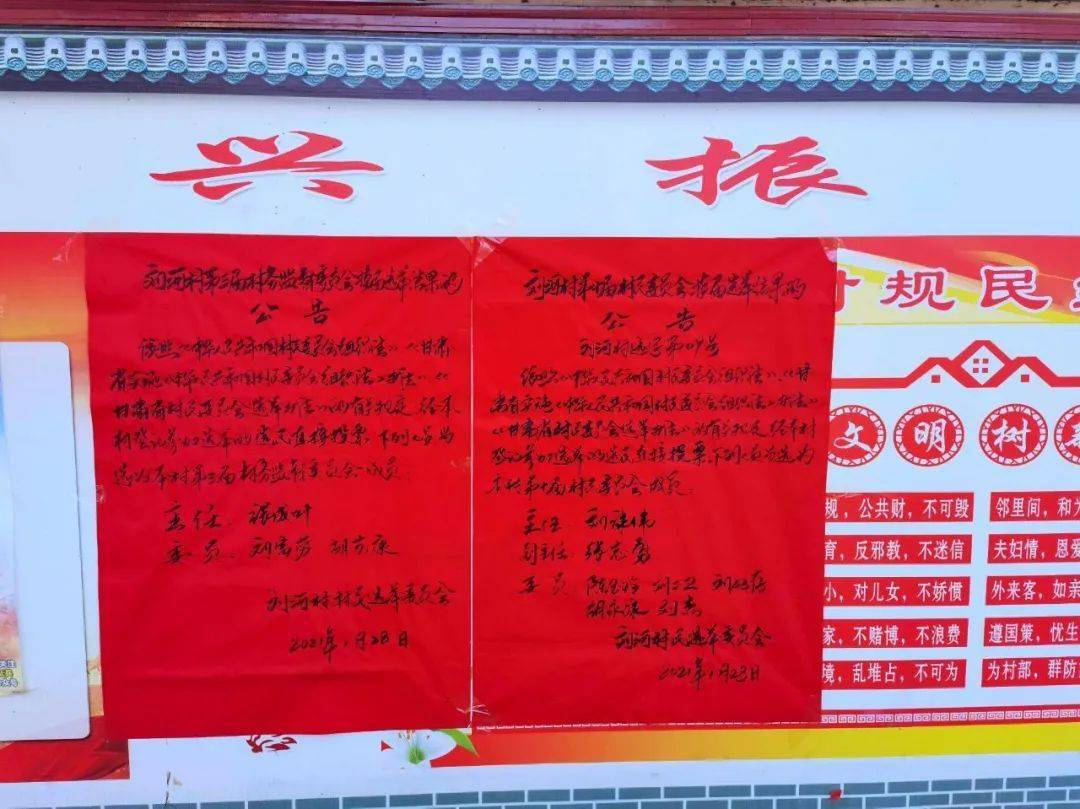 兴 振
刘河村第三届村务监督委员会换届选举结果的
公告
依照《中华人民共和国村民委员会组织法》、《甘肃
省实施《中华人民共和国村民委员会组织法》办法》、《
甘肃省村民委员会选举办法》的有关规定 经本
村登记参加选举的选民直接投票,下列人员当
选为本村第三届村务监督委员会成员.
主任:
委员:
刘河村村民选举委员会
2021年1月28日
刘河村第十届村民委员会换届选举结果的
公告
依照《中华人民共和国村民委员会组织法》、《甘
肃省实施《中华人民共和国村民委员会组织法》办法》
《甘肃省村民委员会选举办法》的有关规定经本村
登记参加选举的选民直接投票,下列人员当选为
本村第十届村民委员会成员.
主任:
副主任:
委员
刘河村民选举委员会
2021年1月28日
规民
文明树
规,公共财,不可毁
育,反邪教,不迷信
小,对儿女,不娇惯
家,不赌博,不浪费
境,乱堆占,不可为
邻里间,和为
夫妇情,恩爱
外来客,如亲
遵国策,优生
为村部,群防